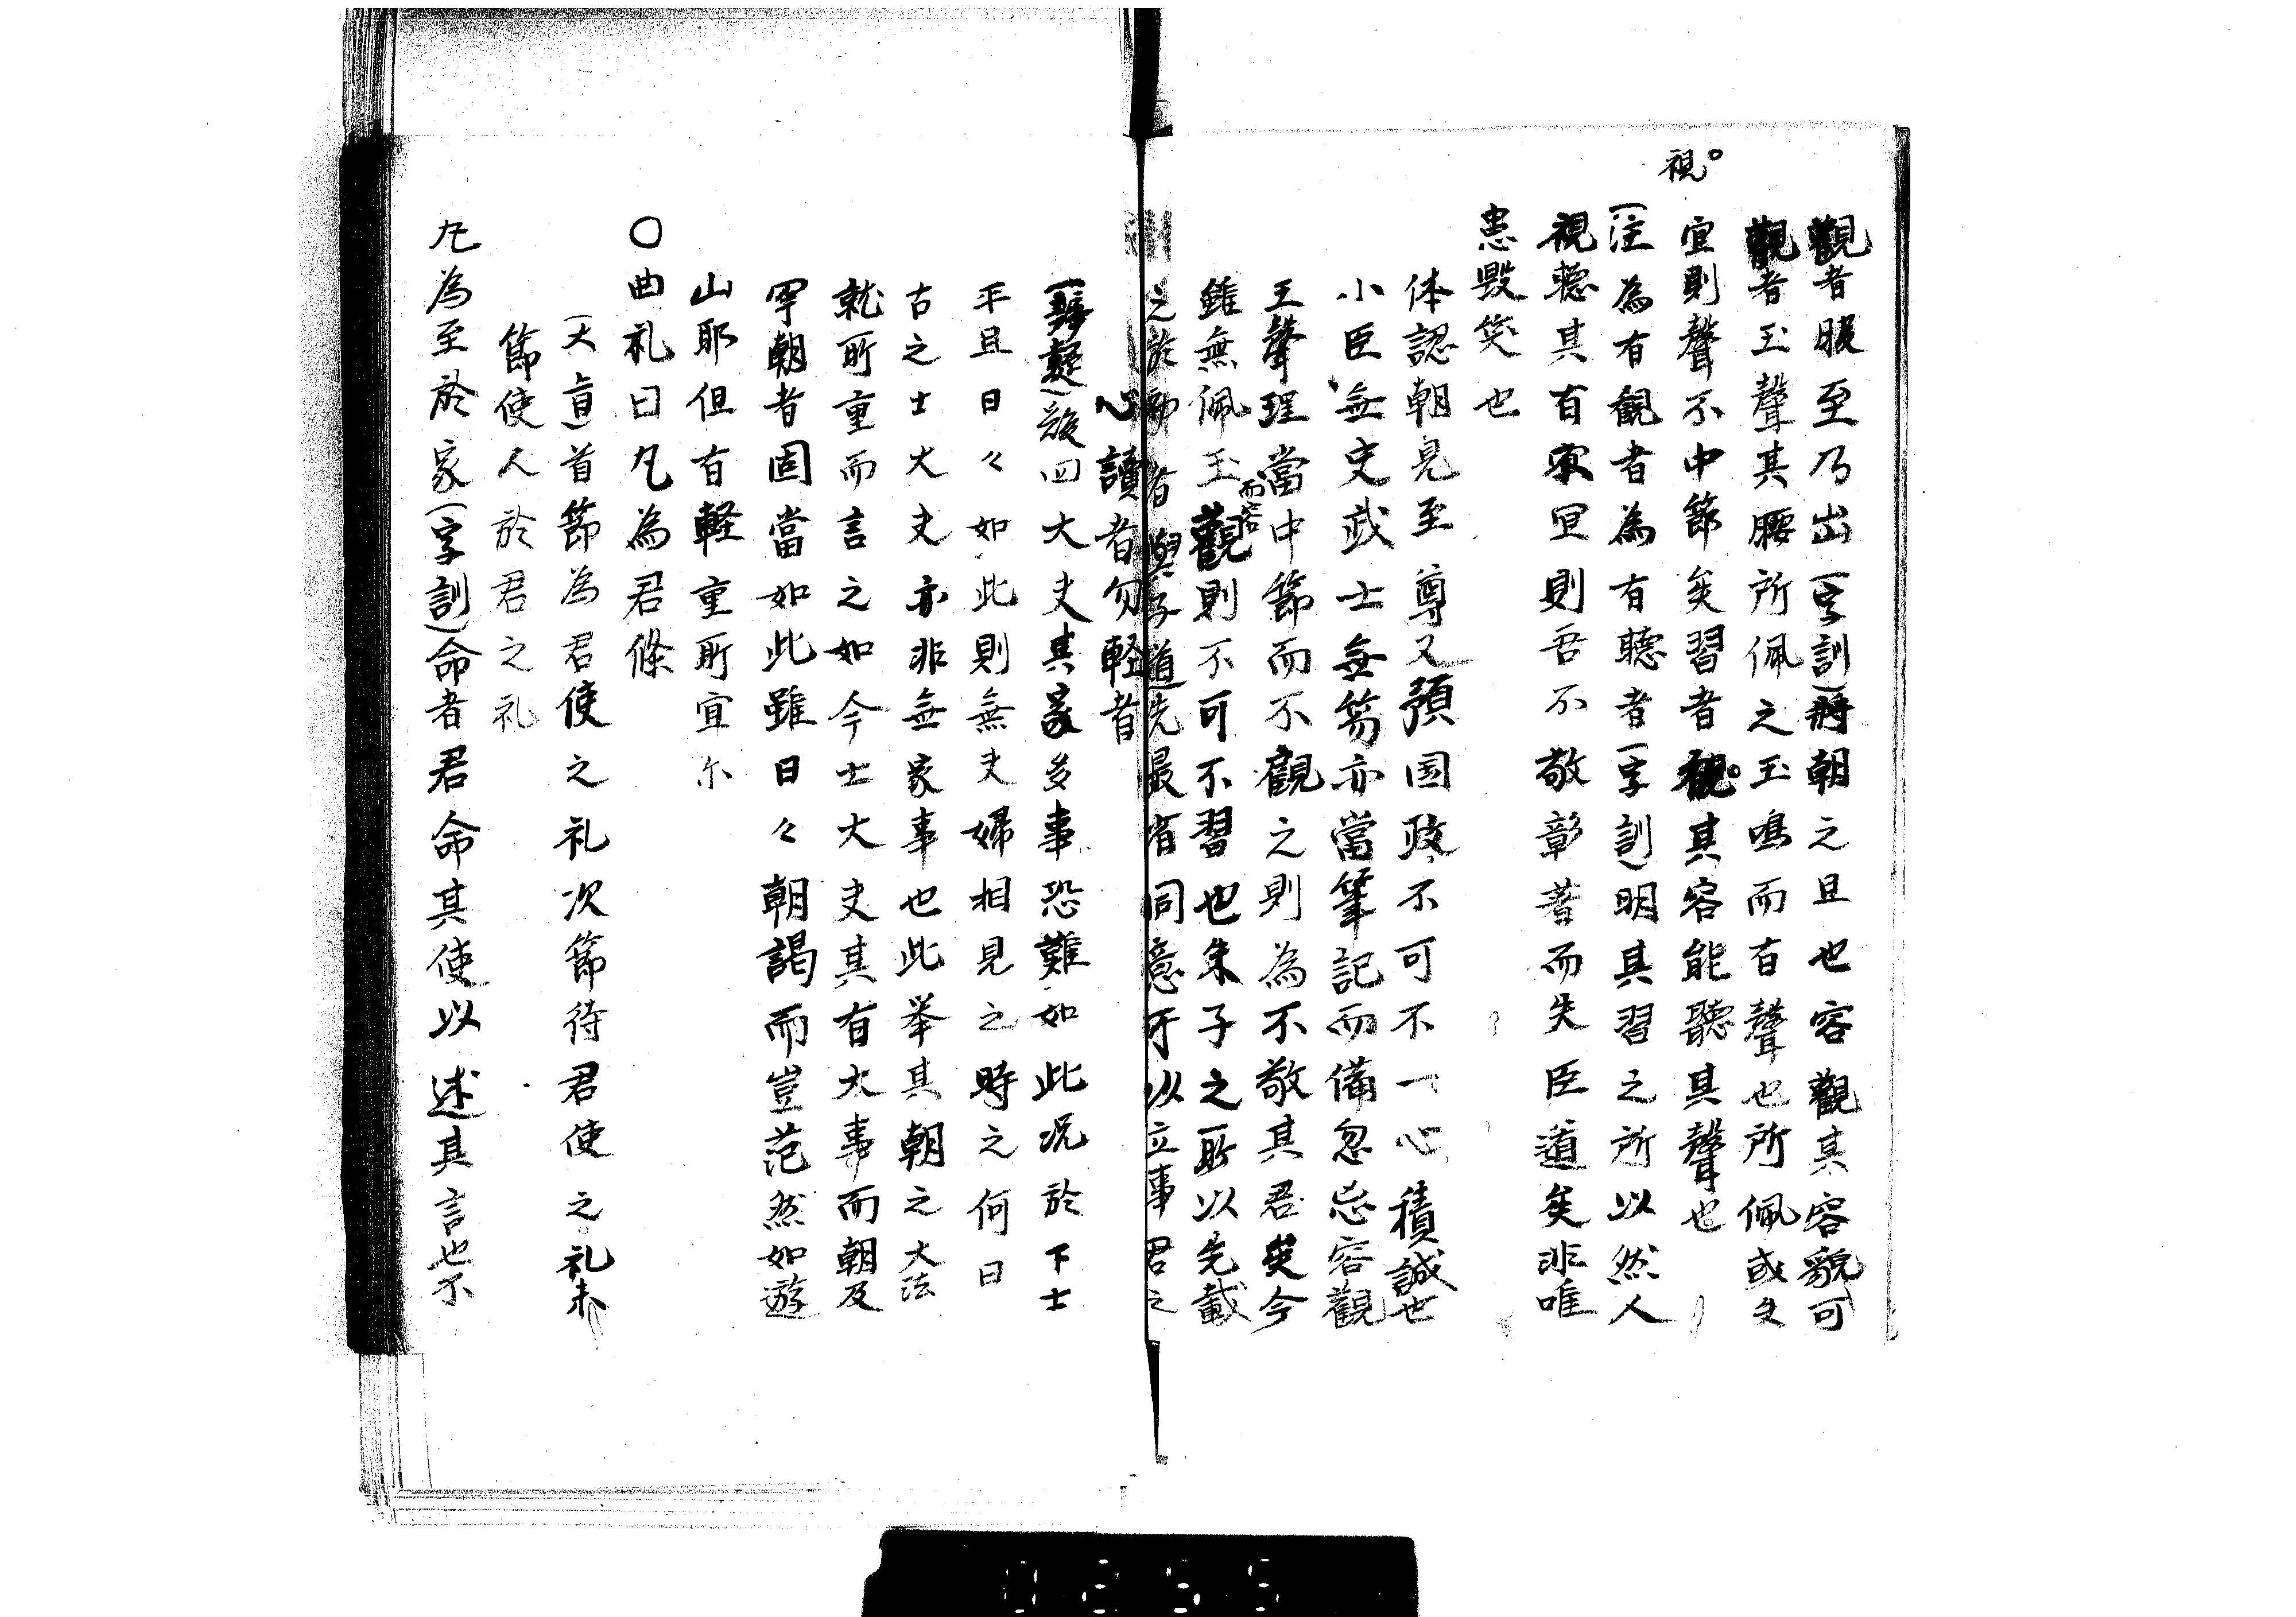 視
觀者服至乃出(字訓)將朝之旦也容觀其容貌可
觀者玉聲其腰所佩之玉鳴而有聲也所佩或文
宜則聲不中節矣習者視其容能聽其聲也
(注)為有觀者為有聽者(字訓)明其習之所以然人
視聽其有宜則吾不敬彰著而失臣道矣非唯
患毀笑也
体認朝見至尊又預国政不可不一心積誠也
小臣無史武士無笏亦當筆記而備忽忘容觀
玉聲理當中節而不觀之則為不敬其君矣今
雖無佩玉而容觀則不可不習也朱子之所以先載
之於者與子道先最省同意所以立事君之
心讀者勿軽者
(辨疑)後四大夫其家多事恐難如此况於下士
平旦日々如此則無夫婦相見之時之何曰
古之士大夫亦非無家事也此举其朝之大法
就所重而言之如今士大夫其有大事而朝及
罕朝者固當如此雖日々朝謁而豈茫然如遊
山耶但有軽重所宜尓
〇曲礼曰凡為君條
(大旨)首節為君使之礼次節待君使之礼末
節使人於君之礼
凡為至於家(字訓)命者君命其使以述其言也不